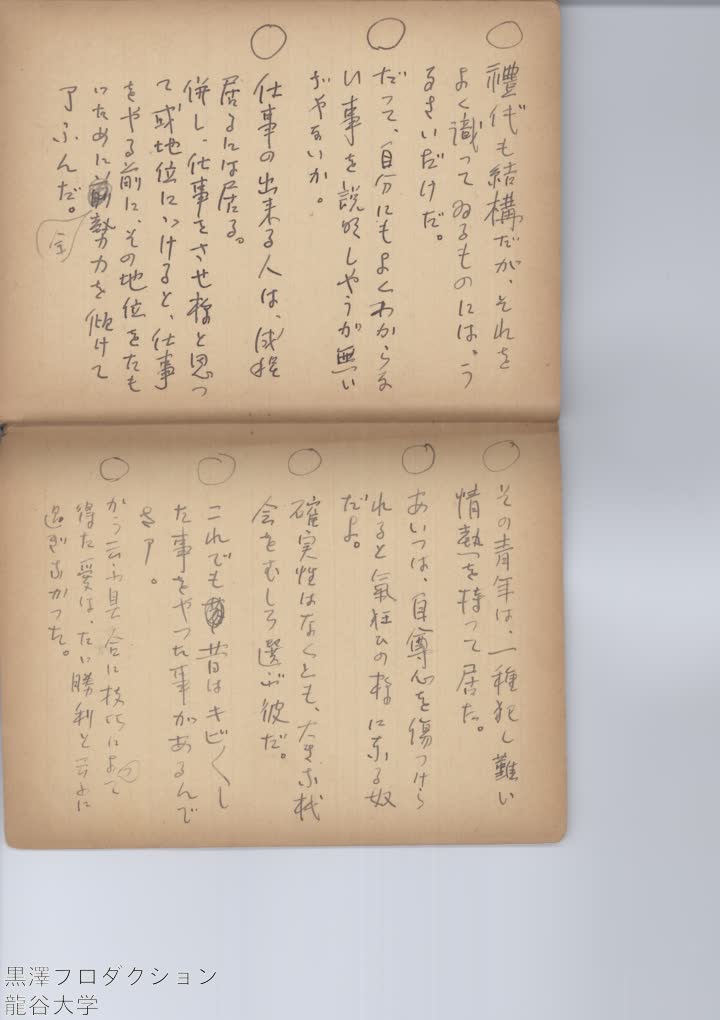 禮代も結構だが、それを
よく識ってゐるものには、う
るさいだけだ。
だって、自分にもよくわからな
い事を説明しやうが無い
ぢやないか。
仕事の出来る人は、成程
居るには居る。
併し、仕事をさせ様と思っ
て或地位につけると、仕事
をやる前に、その地位をたも
つために全勢力を傾けて
了ふんだ。
その青年は、一種犯し難い
情熱を持って居た。
あいつは、自尊心を傷つけら
れると氣狂ひの様になる奴
だよ。
確実性はなくとも、大きな機
会をむしろ選ぶ彼だ。
これでも昔はキビ〱し
た事をやった事があるんで
さア。
かう云ふ具合に技巧によって
得た愛は、たゞ勝利と云ふに
過ぎなかつた。
黒澤プロダクション
龍谷大学